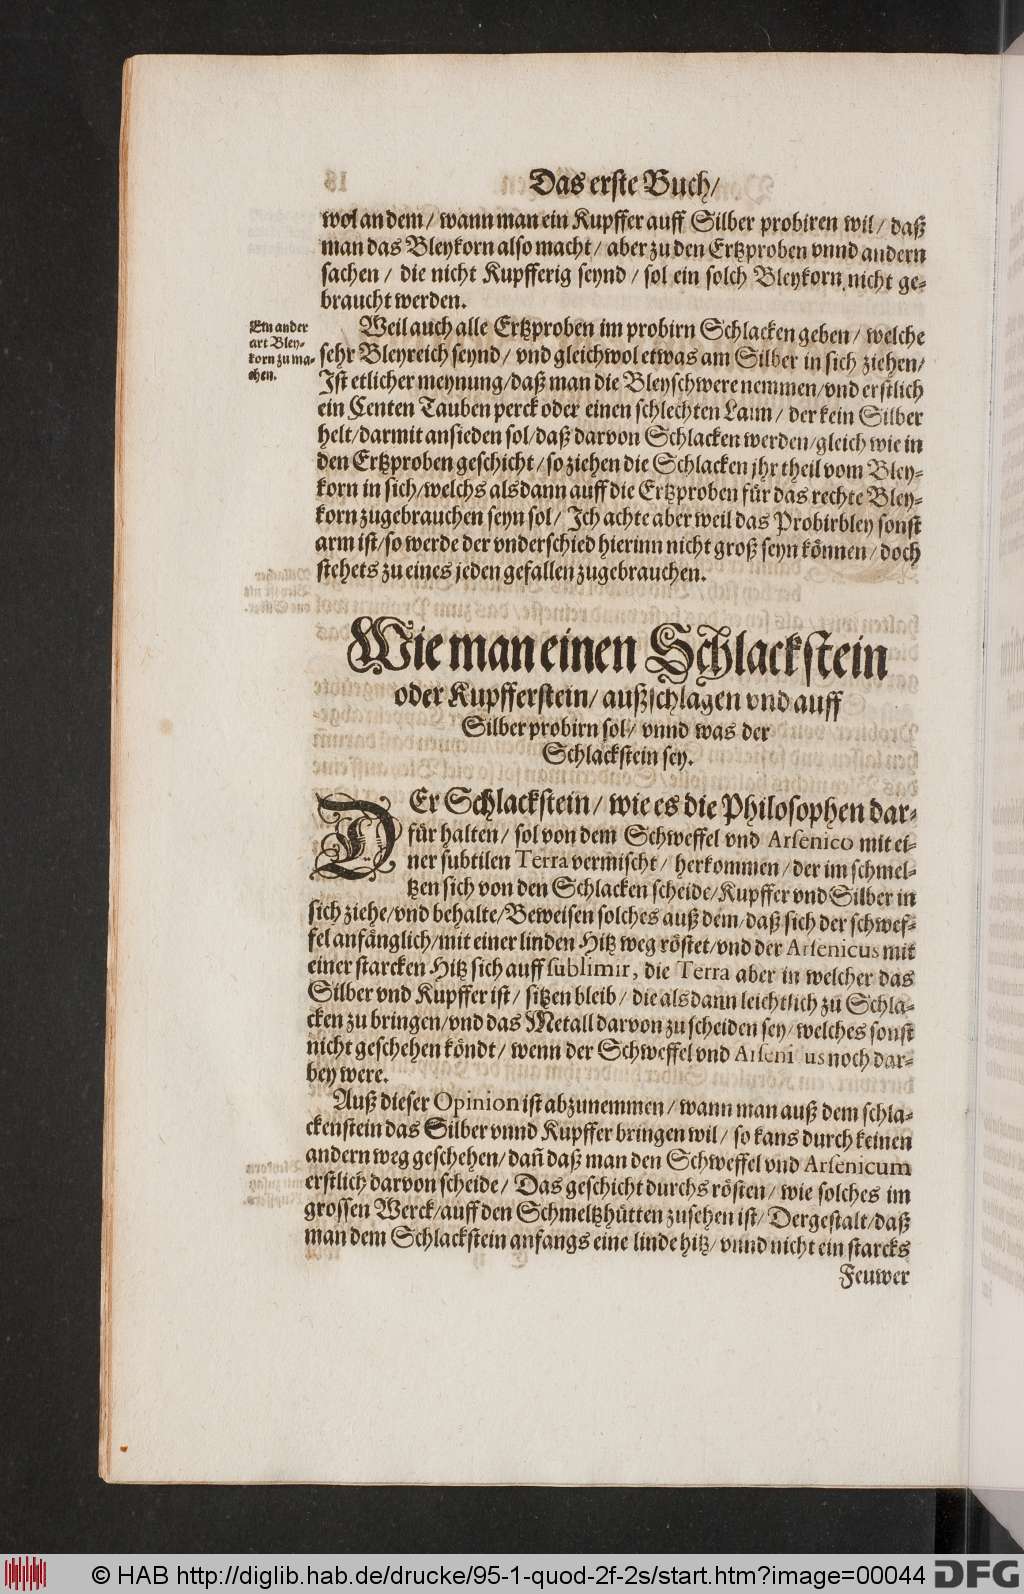 Das erste Buch/
wol an dem / wann man ein Kupffer auff Silber probiren wil / daß
man das Bleykorn also macht / aber zu den Ertzproben vnnd andern
sachen / die nicht Kupfferig seynd / sol ein solch Bleykorn nicht ge-
braucht werden.
Ein ander
art Bley-
korn zu ma-
chen.
Weil auch alle Ertzproben im probirn Schlacken geben / welche
sehr Bleyreich seynd / vnd gleichwol etwas am Silber in sich ziehen /
Ist etlicher meynung / daß man die Bleyschwere nemmen / vnd erstlich
ein Centen Tauben perck oder einen schlechten Laim / der kein Silber
helt / darmit ansieden sol / daß darvon Schlacken werden / gleich wie in
den Ertzproben geschicht / so ziehen die Schlacken jhr theil vom Bley-
korn in sich / welchs alsdann auff die Ertzproben für das rechte Bley-
korn zugebrauchen seyn sol / Ich achte aber weil das Probirbley sonst
arm ist / so werde der vnderschied hierinn nicht groß seyn können / doch
stehets zu eines jeden gefallen zugebrauchen.
Wie man einen Schlackstein
oder Kupfferstein / außschlagen vnd auff
Silber probirn sol / vnnd was der
Schlackstein sey.
DEr Schlackstein / wie es die Philosophen dar-
für halten / sol von dem Schweffel vnd Arsenico mit ei-
ner subtilen Terra vermischt / herkommen / der im schmel-
tzen sich von den Schlacken scheide / Kupffer vnd Silber in
sich ziehe / vnd behalte / Beweisen solches auß dem / daß sich der schwef-
fel anfänglich / mit einer linden Hitz weg röstet / vnd der Arsenicus mit
einer starcken Hitz sich auff sublimir, die Terra aber in welcher das
Silber vnd Kupffer ist / sitzen bleib / die alsdann leichtlich zu Schla-
cken zu bringen / vnd das Metall darvon zu scheiden sey / welches sonst
nicht geschehen köndt / wenn der Schweffel vnd Arseni us noch dar-
bey were.
Auß dieser Opinion ist abzunemmen / wann man auß dem schla-
ckenstein das Silber vnnd Kupffer bringen wil / so kans durch keinen
andern weg geschehen / dañ daß man den Schweffel vnd Arsenicum
erstlich darvon scheide / Das geschicht durchs rösten / wie solches im
grossen Werck / auff den Schmeltzhütten zusehen ist / Dergestalt / daß
man dem Schlackstein anfangs eine linde hitz / vnnd nicht ein starcks
Feuwer
© HAB http://diglib.hab.de/drucke/95-1-quod-2f-2s/start.htm?image=00044
DFG